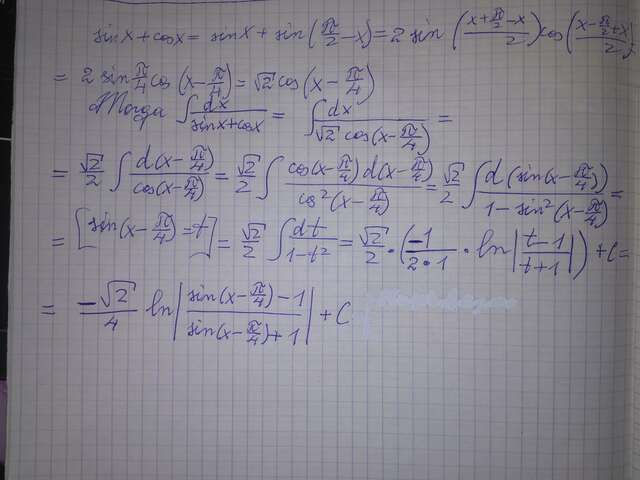 sinx + cosx = sinx + sin(π/2 - x) = 2 sin((x + π/2 - x)/2) cos((x - π/2 + x)/2)
= 2 sin π/4 cos(x - π/4) = √2 cos(x - π/4)
Тогда ∫ dx/(sinx + cosx) = ∫ dx/(√2 cos(x - π/4)) =
= √2/2 ∫ d(x - π/4)/cos(x - π/4) = √2/2 ∫ cos(x - π/4) d(x - π/4)/cos²(x - π/4) = √2/2 ∫ d(sin(x - π/4))/(1 - sin²(x - π/4)) =
= [sin(x - π/4) = t] = √2/2 ∫ dt/(1 - t²) = √2/2 · (-1/(2·1) · ln|(t - 1)/(t + 1)|) + C =
= -√2/4 ln|(sin(x - π/4) - 1)/(sin(x - π/4) + 1)| + C